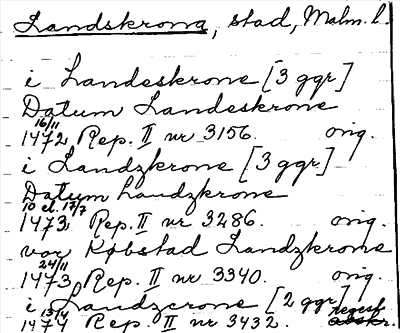 Landskrona, stad, Malm. l.
i Landeskrone [3 ggr]
Datum Landeskrone
16/11
1472 Rep. II nr 3156. orig.
i Landzkrone [3 ggr]
Datum Landzkrone
10 el. 17/7
1473 Rep. II nr 3286. orig.
vor Købstad Landzkrone
24/11
1473 Rep. II nr 3340. orig.
i Landzcrone [2 ggr]
13/4 regest
1474 Rep. II nr 3432.